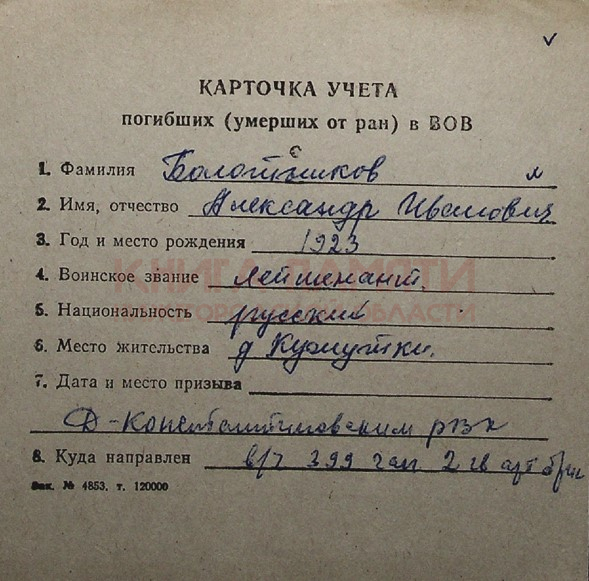 КАРТОЧКА УЧЕТА
погибших (умерших от ран) в ВОВ
1. Фамилия Болотников
2. Имя, отчество Александр Иванович
3. Год и место рождения 1923
4. Воинское звание лейтенант.
КНИГА ПАМЯТИ
5. Национальность русский
НИЖЕГОРОДСКОЙ ОБЛАСТИ
6. Место жительства д
7. Дата и место призыва
Д-Константиновским рвк
8. Куда направлен в/ч 399 гап 2 гв арт бриг
Зак. № 4853. т. 120000